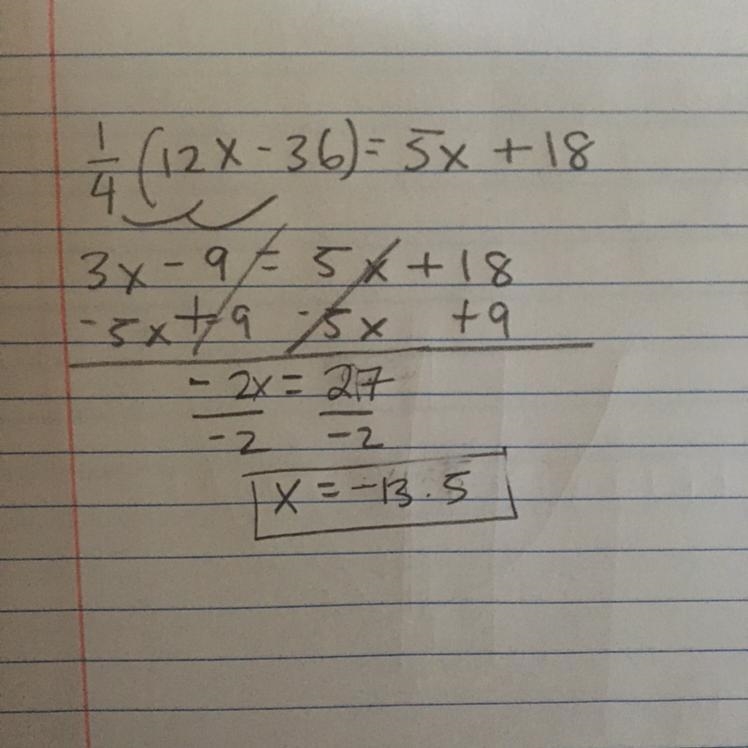 1/4 (12x - 36) = 5x + 18
3x - 9 = 5x + 18
-5x + 9 -5x +9
-2x = 27
-2 -2
x = -13.5